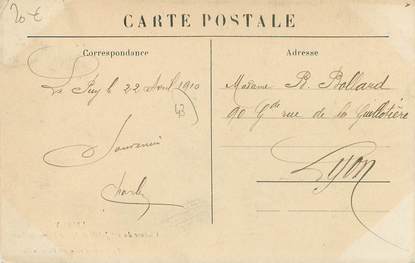 20 €
CARTE POSTALE
Correspondance
Le Puy le 22 Avril 1910
43
Souvenir
Charles
Adresse
Madame B. Bollard
90 Gde rue de la Guillotière
Lyon